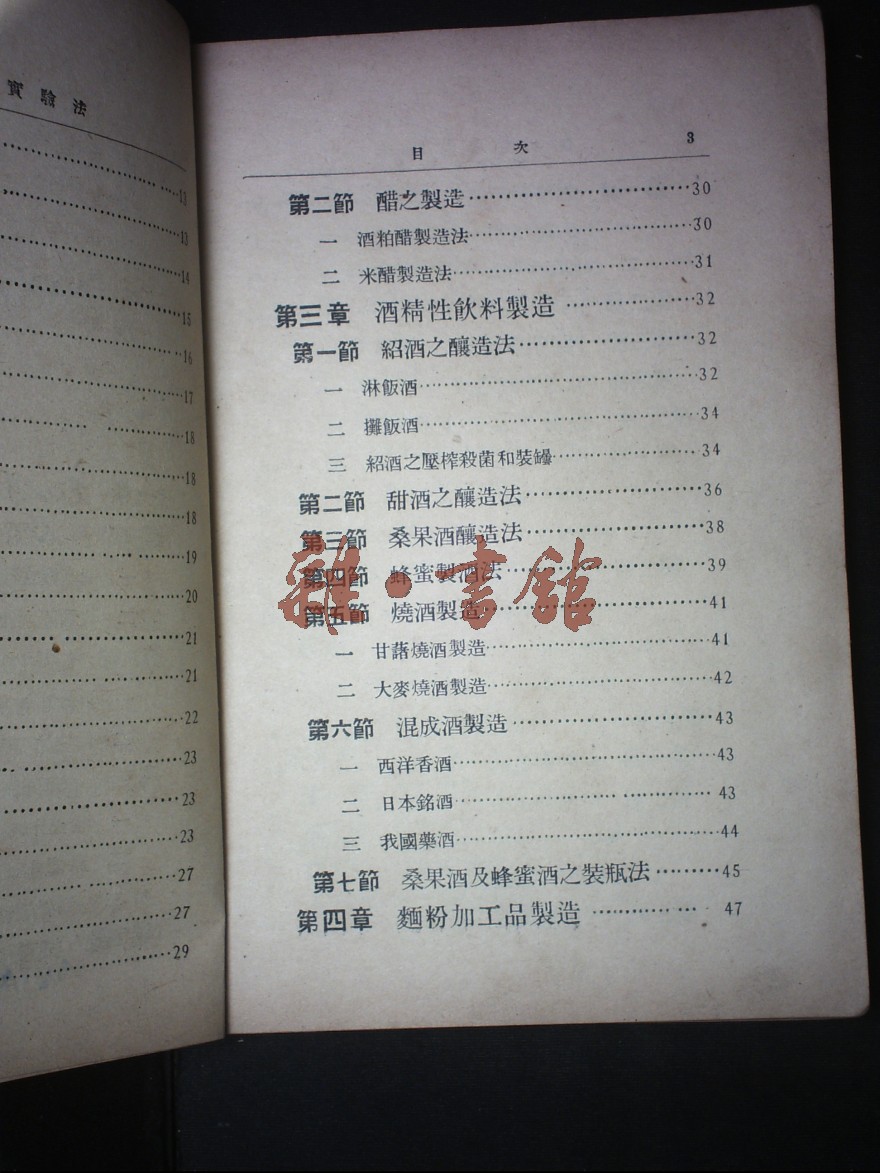 實驗法
12
13
14
15
16
17
18
18
18
19
20
21
21
22
23
23
23
27
27
29
目次 3
第二節 醋之製造 30
一 酒粕醋製造法 30
二 米醋製造法 31
第三章 酒精性飲料製造 32
第一節 紹酒之釀造法 32
一 淋飯酒 32
二 攤飯酒 34
三 紹酒之壓榨殺菌和裝罎 34
第二節 甜酒之釀造法 36
第三節 桑果酒釀造法 38
第四節 蜂蜜製酒法 39
第五節 燒酒製造 41
一 甘藷燒酒製造 41
二 大麥燒酒製造 42
第六節 混成酒製造 43
一 西洋香酒 43
二 日本銘酒 43
三 我國藥酒 44
第七節 桑果酒及蜂蜜酒之裝瓶法 45
第四章 麵粉加工品製造 47
雜·書館